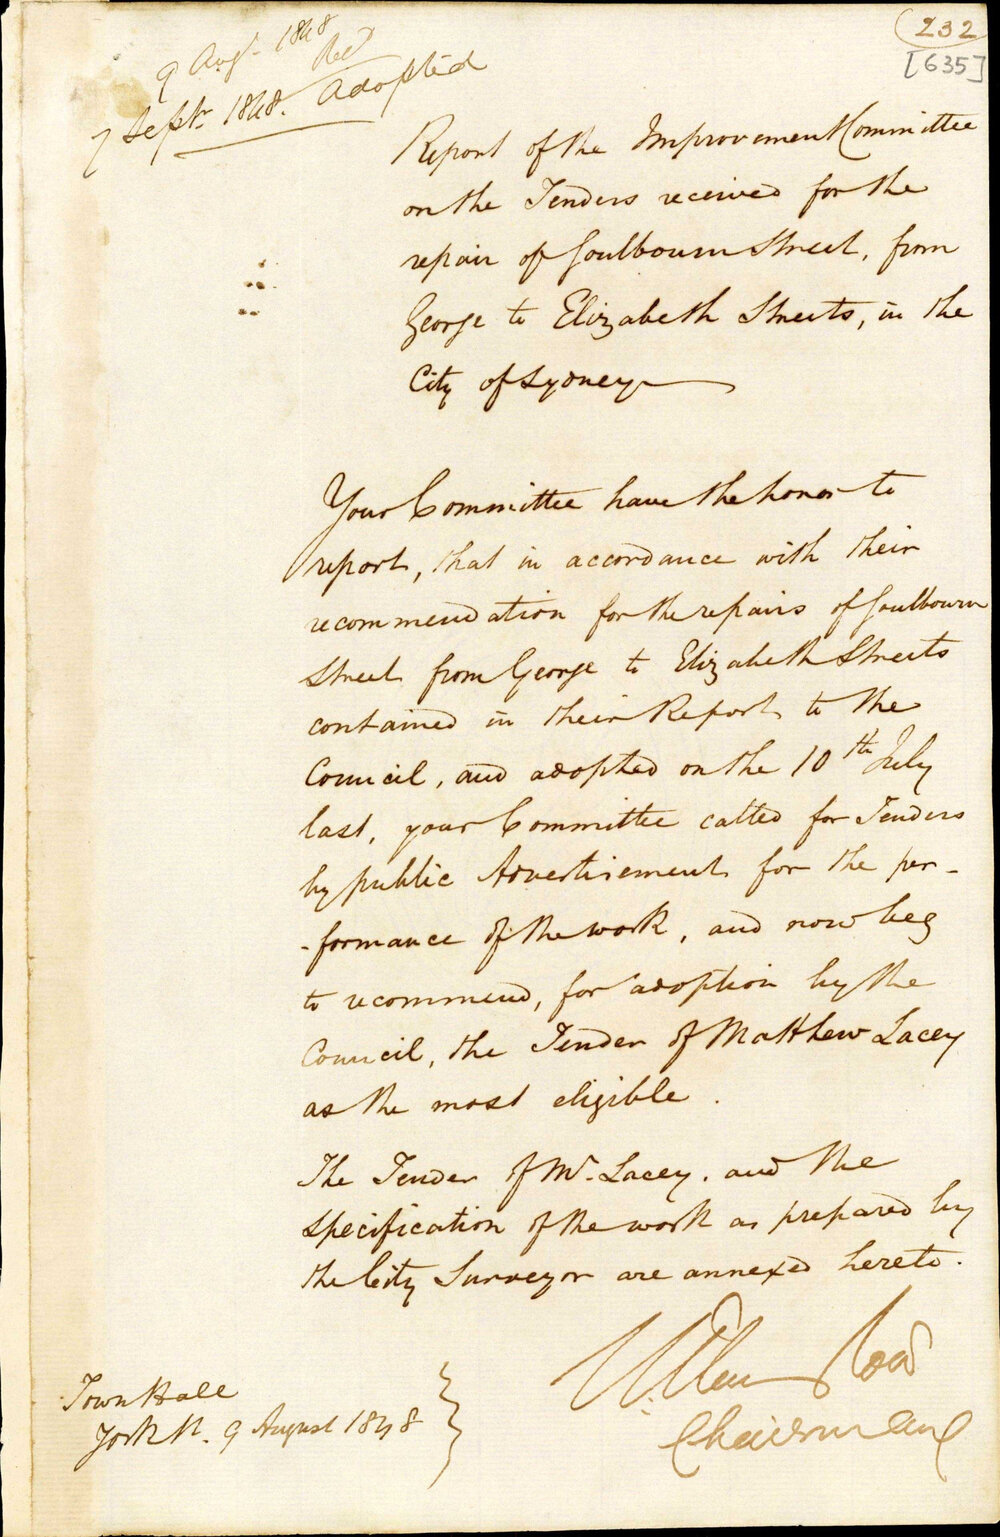 232
[635]
9 Augt. 1848
Recd
7 Septr. 1848. Adopted
Report of the Improvement Committee
on the Tenders received for the
repair of Goulbourn Street, from
George to Elizabeth Streets, in the
City of Sydney
Your Committee have the honor to
report, that in accordance with their
recommendation for the repairs of Goulbourn
Street from George to Elizabeth Streets
contained in their Report to the
Council, and adopted on the 10th July
last, your Committee called for Tenders
by public Advertisement for the per-
-formance of the work, and now beg
to recommend, for adoption by the
Council, the Tender of Matthew Lacey
as the most eligible.
The Tender of Mr. Lacey. and the
specification of the work as prepared by
the City Surveyor are annexed hereto.
Chairman
Town Hall
York St. 9 August 1848